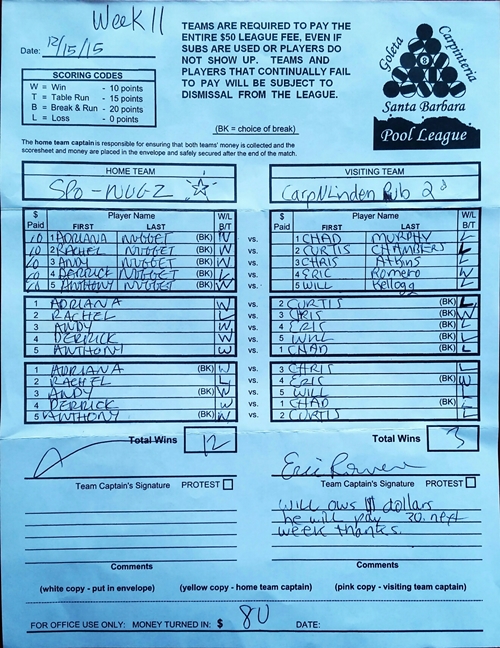 Week 11
Date: 12/15/15
TEAMS ARE REQUIRED TO PAY THE
ENTIRE $50 LEAGUE FEE, EVEN IF
SUBS ARE USED OR PLAYERS DO
NOT SHOW UP. TEAMS AND
PLAYERS THAT CONTINUALLY FAIL
TO PAY WILL BE SUBJECT TO
DISMISSAL FROM THE LEAGUE.
Goleta Carpinteria
8
Santa Barbara
Pool League
SCORING CODES
W = Win - 10 points
T = Table Run - 15 points
B = Break & Run - 20 points
L = Loss - 0 points
(BK = choice of break)
The home team captain is responsible for ensuring that both teams' money is collected and the
scoresheet and money are placed in the envelope and safely secured after the end of the match.
HOME TEAM VISITING TEAM
SPO-NUGZ CarpNLinden Pub 2
$ Paid Player Name FIRST LAST W/L B/T $ Paid Player Name FIRST LAST W/L B/T
10 1 ADRIANA NUGGET (BK) W vs. 1 CHAD MURPHY L
10 2 RACHEL NUGGET (BK) W vs. 2 CURTIS CHAMBERS L
10 3 ANDY NUGGET (BK) W vs. 3 CHRIS Atkins L
10 4 DERRICK NUGGET (BK) vs. 4 ERIC Romero
10 5 ANTHONY NUGGET (BK) W vs. 5 WILL Kellogg L
1 ADRIANA W vs. 2 CURTIS (BK) L
2 RACHEL L vs. 3 CHRIS (BK) W
3 ANDY W vs. 4 ERIC (BK) L
4 DERRICK W vs. 5 WILL (BK) L
5 ANTHONY W vs. 1 CHAD (BK) L
1 ADRIANA (BK) W vs. 3 CHRIS L
2 RACHEL L vs. 4 ERIC (BK) W
3 ANDY (BK) W vs. 5 WILL L
4 DERRICK W vs. 1 CHAD (BK) L
5 ANTHONY (BK) W vs. 2 CURTIS L
Total Wins 12 Total Wins 3
Team Captain's Signature PROTEST Team Captain's Signature PROTEST
Will ows dollars
he will pay 30. next
week thanks.
Comments Comments
(white copy - put in envelope) (yellow copy - home team captain) (pink copy - visiting team captain)
FOR OFFICE USE ONLY: MONEY TURNED IN: $ 80 DATE: